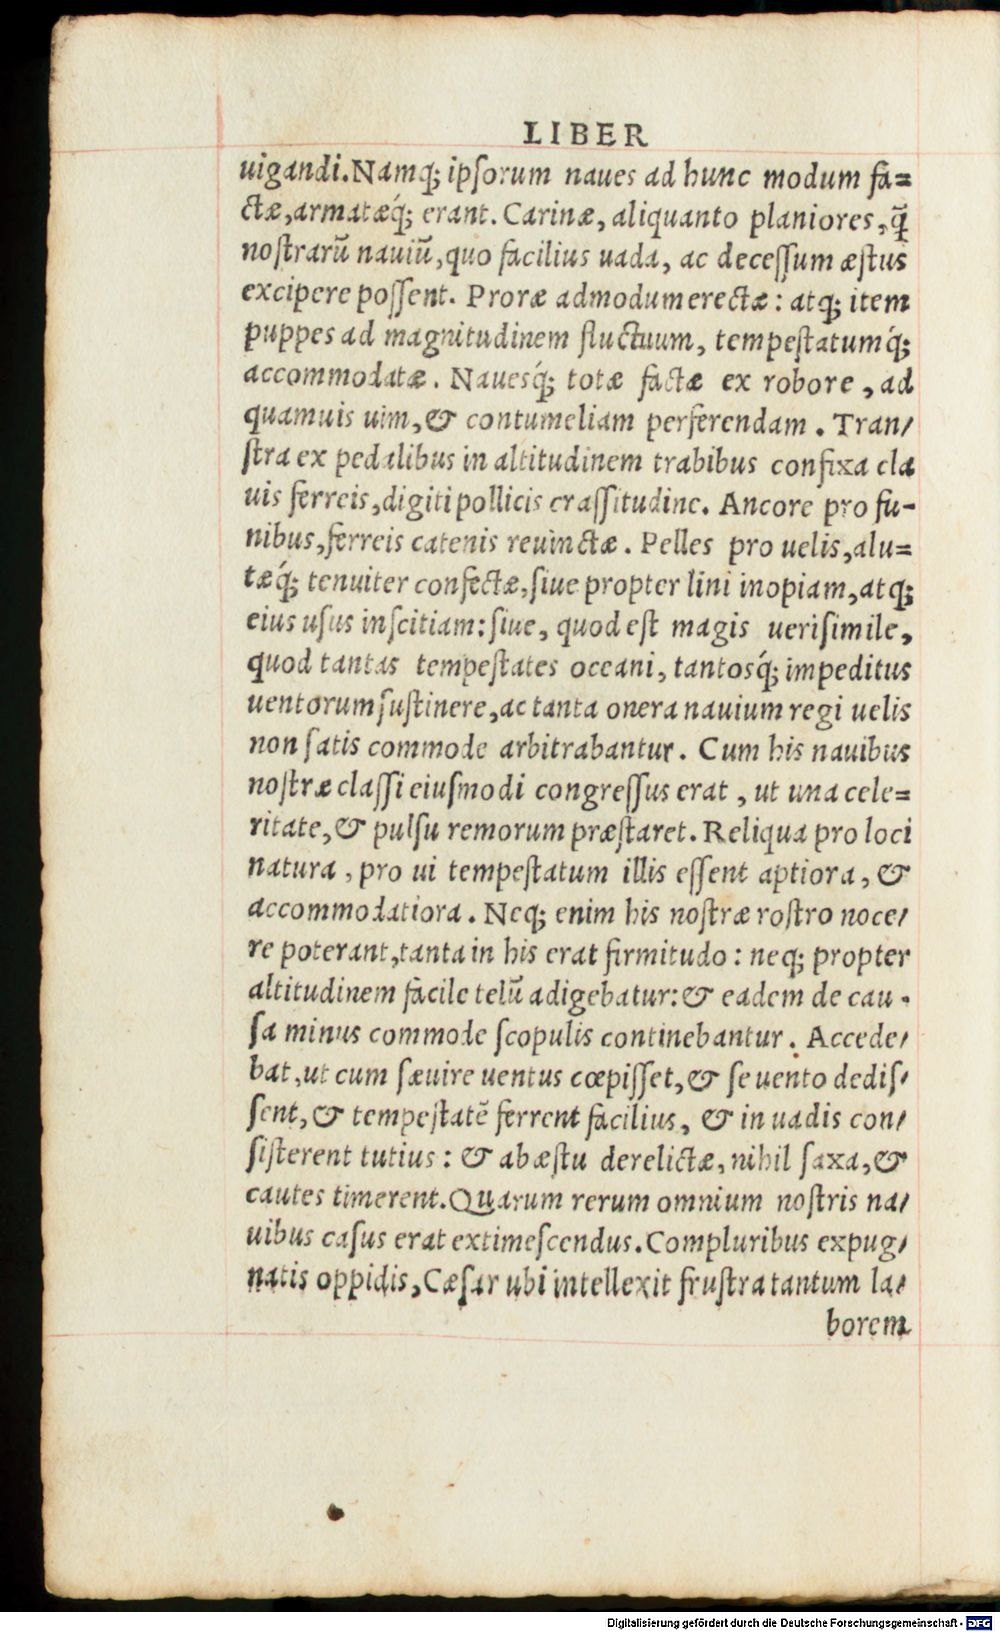 LIBER
uigandi. Namq; ipſorum naues ad hunc modum fa=
ctæ, armatæq́; erant. Carinæ, aliquanto planiores, q̄
noſtrarū nauiū, quo facilius uada, ac deceſſum æſtus
excipere poſſent. Proræ admodum erectæ: atq; item
puppes ad magnitudinem fluctuum, tempeſtatumq́;
accommodatæ. Naueſq́; totæ factæ ex robore, ad
quamuis uim, & contumeliam perferendam. Tran/
ſtra ex pedalibus in altitudinem trabibus confixa cla
uis ferreis, digiti pollicis craſſitudine. Ancore pro fu-
nibus, ferreis catenis reuinctæ. Pelles pro uelis, alu=
tæq́; tenuiter confectæ, ſiue propter lini inopiam, atq;
eius uſus inſcitiam: ſiue, quod eſt magis ueriſimile,
quod tantas tempeſtates oceani, tantosq́; impeditus
uentorum ſuſtinere, ac tanta onera nauium regi uelis
non ſatis commode arbitrabantur. Cum his nauibus
noſtræ claſſi eiuſmodi congreſſus erat, ut una cele=
ritate, & pulſu remorum præſtaret. Reliqua pro loci
natura, pro ui tempeſtatum illis eſſent aptiora, &
accommodatiora. Neq; enim his noſtræ roſtro noce/
re poterant, tanta in his erat firmitudo: neq; propter
altitudinem facile telū adigebatur: & eadem de cau-
ſa minus commode ſcopulis continebantur. Accede/
bat, ut cum ſæuire uentus cœpiſſet, & ſe uento dediſ/
ſent, & tempeſtatē ferrent facilius, & in uadis con/
ſiſterent tutius: & ab æſtu derelictæ, nihil ſaxa, &
cautes timerent. Quarum rerum omnium noſtris na/
uibus caſus erat extimeſcendus. Compluribus expug/
natis oppidis, Cæſar ubi intellexit fruſtra tantum la/
borem
Digitalisierung gefördert durch die Deutsche Forschungsgemeinschaft - DFG